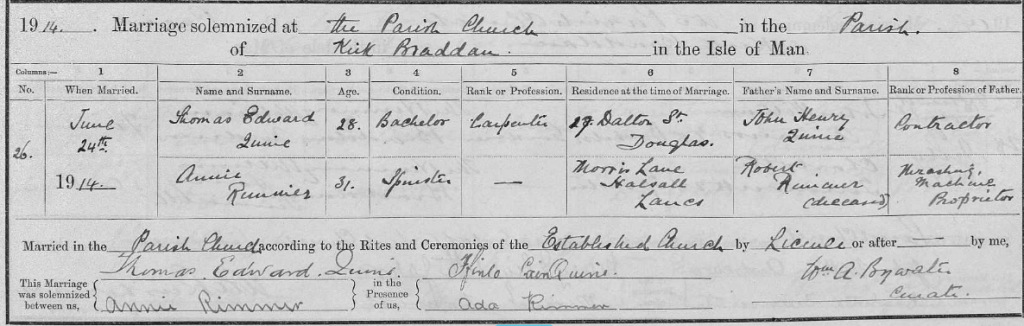 1914. Marriage solemnized at the Parish Church in the Parish
of Kirk Braddan. in the Isle of Man.
Columns:— 1 2 3 4 5 6 7 8
No. When Married. Name and Surname. Age. Condition. Rank or Profession. Residence at the time of Marriage. Father's Name and Surname. Rank or Profession of Father.
26. June 24th 1914.
Thomas Edward Quine 28. Bachelor Carpenter 27 Dalton St. Douglas. John Henry Quine Contractor
Annie Rimmer 31. Spinster — Morris Lane Halsall Lancs Robert Rimmer (deceased) Thrashing Machine Proprietor
Married in the Parish Church according to the Rites and Ceremonies of the Established Church by Licence or after — by me,
This Marriage was solemnized between us, { Thomas Edward Quine. Annie Rimmer } in the Presence of us, { Cain Quine. Ada Rimmer } Wm A. Bywater
Curate.